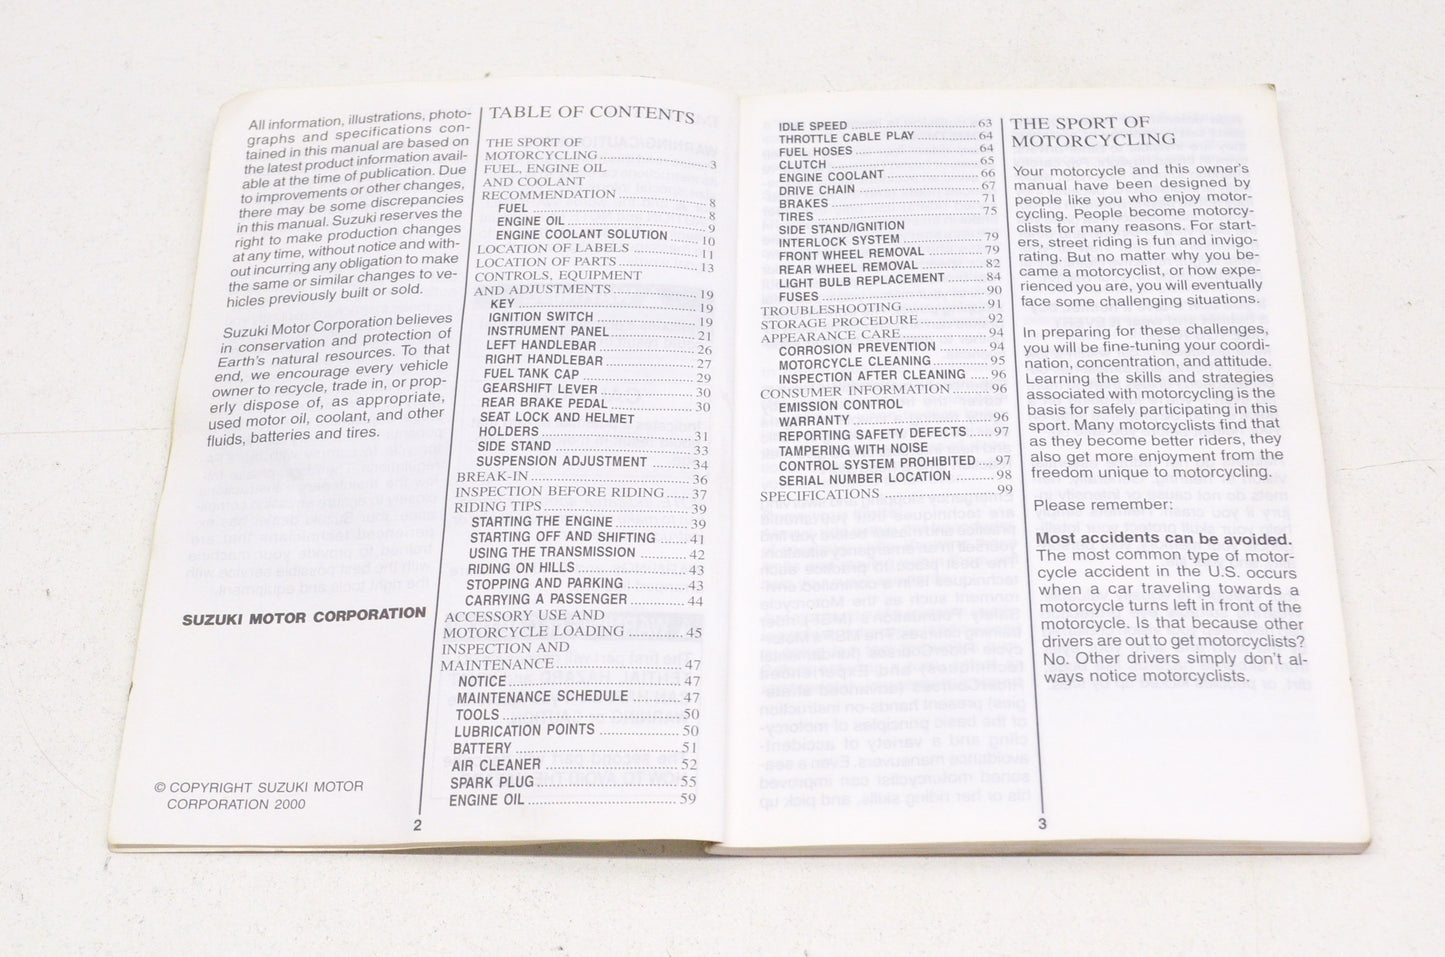 All information, illustrations, photo-
graphs and specifications con-
tained in this manual are based on
the latest product information avail-
able at the time of publication. Due
to improvements or other changes,
there may be some discrepancies
in this manual. Suzuki reserves the
right to make production changes
at any time, without notice and with-
out incurring any obligation to make
the same or similar changes to ve-
hicles previously built or sold.
Suzuki Motor Corporation believes
in conservation and protection of
Earth's natural resources. To that
end, we encourage every vehicle
owner to recycle, trade in, or prop-
erly dispose of, as appropriate,
used motor oil, coolant, and other
fluids, batteries and tires.
SUZUKI MOTOR CORPORATION
© COPYRIGHT SUZUKI MOTOR
CORPORATION 2000
TABLE OF CONTENTS
THE SPORT OF
MOTORCYCLING 3
FUEL, ENGINE OIL
AND COOLANT
RECOMMENDATION 8
FUEL 8
ENGINE OIL 9
ENGINE COOLANT SOLUTION 10
LOCATION OF LABELS 11
LOCATION OF PARTS 13
CONTROLS, EQUIPMENT
AND ADJUSTMENTS 19
KEY 19
IGNITION SWITCH 19
INSTRUMENT PANEL 21
LEFT HANDLEBAR 26
RIGHT HANDLEBAR 27
FUEL TANK CAP 29
GEARSHIFT LEVER 30
REAR BRAKE PEDAL 30
SEAT LOCK AND HELMET
HOLDERS 31
SIDE STAND 33
SUSPENSION ADJUSTMENT 34
BREAK-IN 36
INSPECTION BEFORE RIDING 37
RIDING TIPS 39
STARTING THE ENGINE 39
STARTING OFF AND SHIFTING 41
USING THE TRANSMISSION 42
RIDING ON HILLS 43
STOPPING AND PARKING 43
CARRYING A PASSENGER 44
ACCESSORY USE AND
MOTORCYCLE LOADING 45
INSPECTION AND
MAINTENANCE 47
NOTICE 47
MAINTENANCE SCHEDULE 47
TOOLS 50
LUBRICATION POINTS 50
BATTERY 51
AIR CLEANER 52
SPARK PLUG 55
ENGINE OIL 59
2
IDLE SPEED 63
THROTTLE CABLE PLAY 64
FUEL HOSES 64
CLUTCH 65
ENGINE COOLANT 66
DRIVE CHAIN 67
BRAKES 71
TIRES 75
SIDE STAND/IGNITION
INTERLOCK SYSTEM 79
FRONT WHEEL REMOVAL 79
REAR WHEEL REMOVAL 82
LIGHT BULB REPLACEMENT 84
FUSES 90
TROUBLESHOOTING 91
STORAGE PROCEDURE 92
APPEARANCE CARE 94
CORROSION PREVENTION 94
MOTORCYCLE CLEANING 95
INSPECTION AFTER CLEANING 96
CONSUMER INFORMATION 96
EMISSION CONTROL
WARRANTY 96
REPORTING SAFETY DEFECTS 97
TAMPERING WITH NOISE
CONTROL SYSTEM PROHIBITED 97
SERIAL NUMBER LOCATION 98
SPECIFICATIONS 99
THE SPORT OF
MOTORCYCLING
Your motorcycle and this owner's
manual have been designed by
people like you who enjoy motor-
cycling. People become motorcy-
clists for many reasons. For start-
ers, street riding is fun and invigo-
rating. But no matter why you be-
came a motorcyclist, or how expe-
rienced you are, you will eventually
face some challenging situations.
In preparing for these challenges,
you will be fine-tuning your coordi-
nation, concentration, and attitude.
Learning the skills and strategies
associated with motorcycling is the
basis for safely participating in this
sport. Many motorcyclists find that
as they become better riders, they
also get more enjoyment from the
freedom unique to motorcycling.
Please remember:
Most accidents can be avoided.
The most common type of motor-
cycle accident in the U.S. occurs
when a car traveling towards a
motorcycle turns left in front of the
motorcycle. Is that because other
drivers are out to get motorcyclists?
No. Other drivers simply don't al-
ways notice motorcyclists.
3